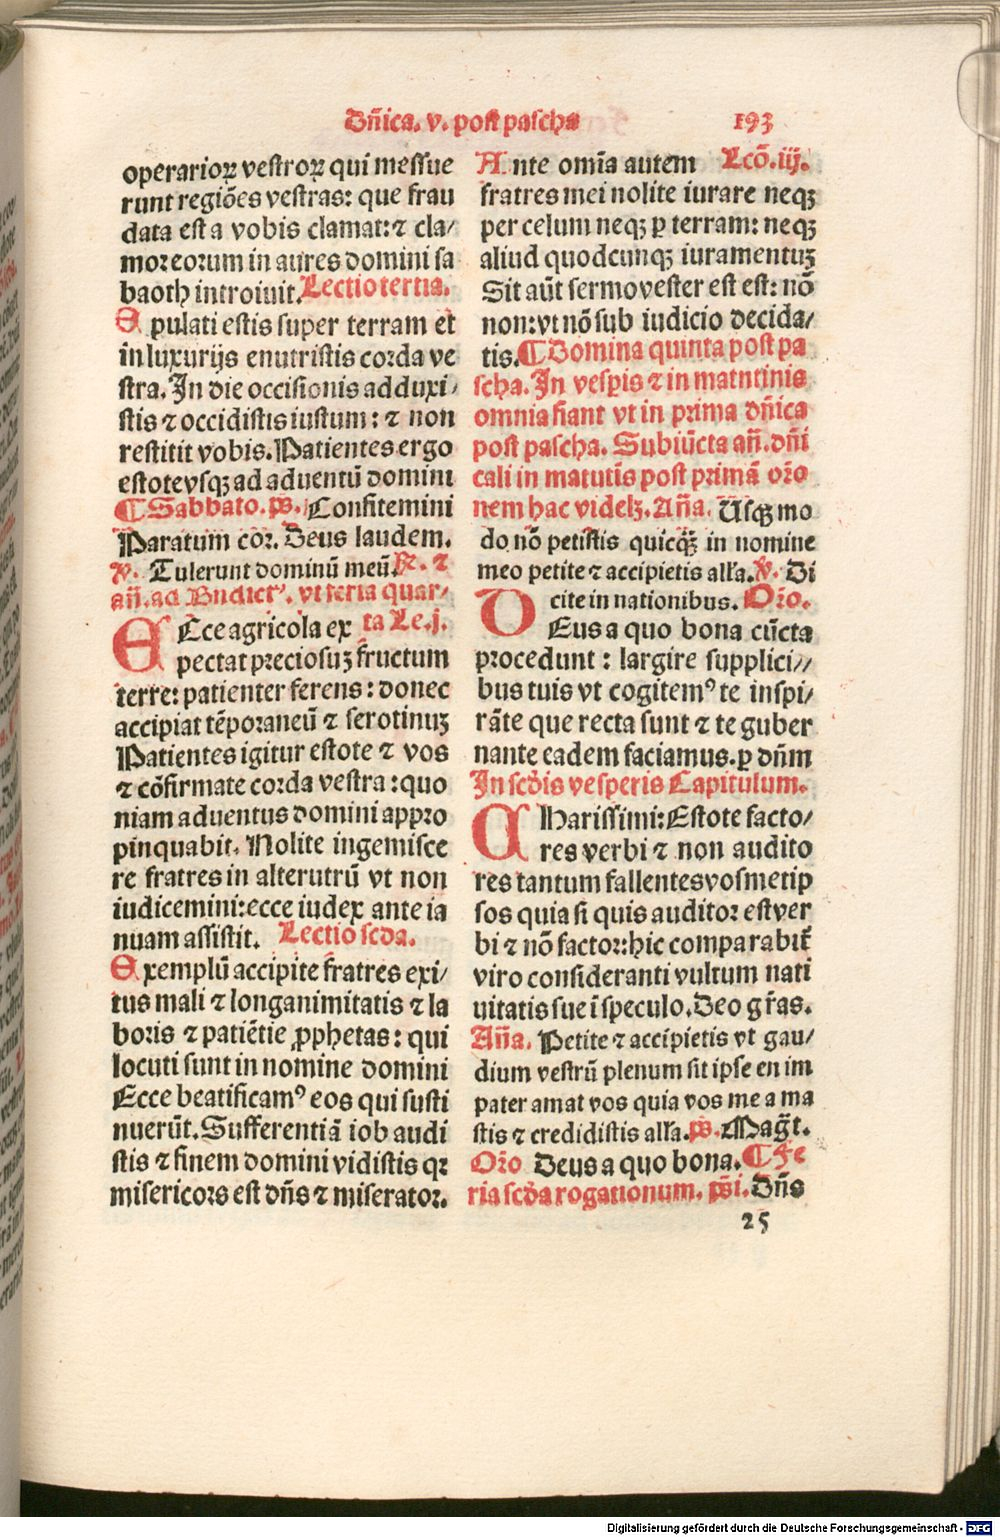 Dñica. v. post pascha 193
operarioꝝ vestroꝝ qui messue
runt regiões vestras: que frau
data est a vobis clamat: ⁊ cla/
mor eorum in aures domini sa
baoth introiuit. Lectio tertia.
Epulati estis super terram et
in luxurijs enutristis corda ve
stra. In die occisionis adduxi/
stis ⁊ occidistis iustum: ⁊ non
restitit vobis. Patientes ergo
estote vsqꝫ ad aduentũ domini
¶ Sabbato. p̃s. Confitemini
Paratum cor. Deus laudem.
℣. Tulerunt dominũ meũ. ℟. ⁊
añ. ad Bñdictꝰ. vt feria quar/
ECce agricola ex ta Le. j.
pectat preciosuꝫ fructum
terre: patienter ferens: donec
accipiat tẽporaneũ ⁊ serotinuꝫ
Patientes igitur estote ⁊ vos
⁊ cõfirmate corda vestra: quo
niam aduentus domini appro
pinquabit. Nolite ingemisce
re fratres in alterutrũ vt non
iudicemini: ecce iudex ante ia
nuam assistit. Lectio scďa.
Exemplũ accipite fratres exi/
tus mali ⁊ longanimitatis ⁊ la
boris ⁊ patiẽtie ꝓphetas: qui
locuti sunt in nomine domini
Ecce beatificamꝰ eos qui susti
nuerũt. Sufferentiã iob audi
stis ⁊ finem domini vidistis qꝛ
misericors est dñs ⁊ miserator.
Ante omĩa autem Lcõ. iij.
fratres mei nolite iurare neqꝫ
per celum neqꝫ ꝑ terram: neqꝫ
aliud quodcunqꝫ iuramentuꝫ
Sit aũt sermo vester est est: nõ
non: vt nõ sub iudicio decida/
tis. ¶ Domina quinta post pa
scha. In vesꝑis ⁊ in matutinis
omnia fiant vt in prima dñica
post pascha. Subiũcta añ. dñi
cali in matutĩs post primã orõ
nem hac videlꝫ. Aña. Usqꝫ mo
do nõ petistis quicq̃ in nomine
meo petite ⁊ accipietis alľa. ℣. Di
cite in nationibus. Orõ.
DEus a quo bona cũcta
procedunt: largire supplici//
bus tuis vt cogitemꝰ te inspi/
rãte que recta sunt ⁊ te guber
nante eadem faciamus. ꝑ dñm
In scďis vesperis Capitulum.
CHarissimi: Estote facto/
res verbi ⁊ non audito
res tantum fallentes vosmetip
sos quia si quis auditor est ver
bi ⁊ nõ factor: hic comparabit̃
viro consideranti vultum nati
uitatis sue ĩ speculo. Deo gr̃as.
Aña. Petite ⁊ accipietis vt gau/
dium vestrũ plenum sit ipse enim
pater amat vos quia vos me ama
stis ⁊ credidistis alľa. p̃s. Mag̃t.
Orõ Deus a quo bona. ¶ Fe
ria scďa rogationum. p̃si. Dñs
25
Digitalisierung gefördert durch die Deutsche Forschungsgemeinschaft - DFG